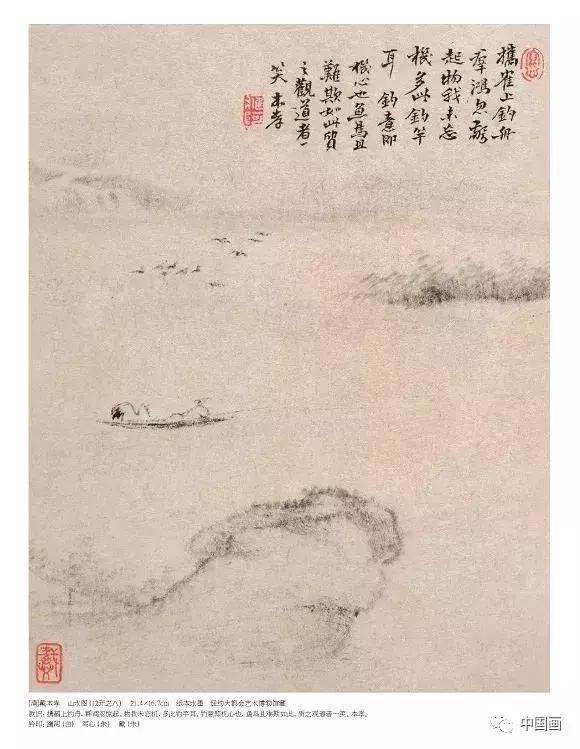 攜寉上釣舟
羣鴻忽驚
起物我未忘
機多此釣竿
耳 釣意即
機心也魚鳥且
難欺如此質
之觀道者一
笑 本孝
[清]戴本孝 山水图(12开之八) 21.4×16.7cm 纸本水墨 纽约大都会艺术博物馆藏
款识：携鹤上钓舟，群鸿忽惊起。物我未忘机，多此钓竿耳。钓意即机心也，鱼鸟且难欺如此，质之观道者一笑。本孝。
钤印：鹰阿(白) 写心(朱) 戴(朱)
中国画